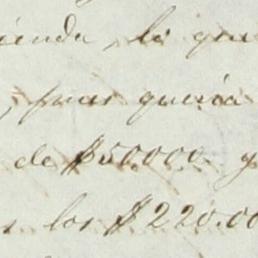 ienda, lo que
, pues queria
de $50000. y
los $220.00